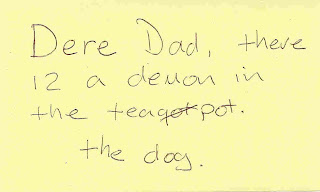 Dere Dad, there
12 a demon in
the teapot.
the dog.